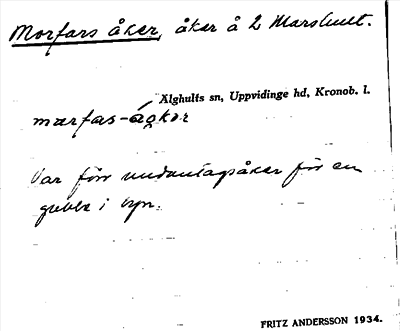 Morfars åker, åker å 2 Marshult.
Älghults sn, Uppvidinge hd, Kronob. l.
mærfas-
Var förr undantagsåker för en
gubbe i byn.
FRITZ ANDERSSON 1934.